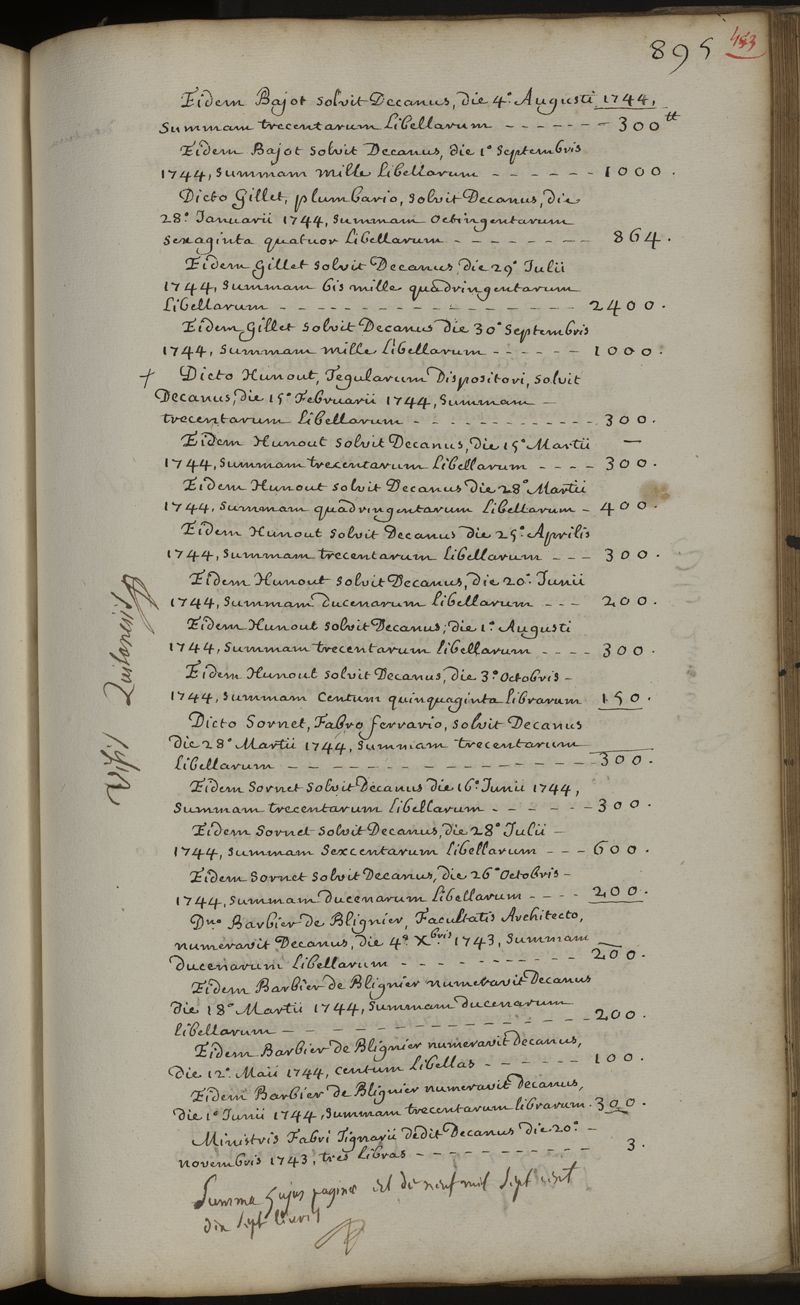 895 453
Eidem Bajot solvit Decanus, die 4ª. Augusti 1744,
Summam trecentarum Libellarum - - - - - - - 300 tt
Eidem Bajot solvit Decanus, die 1ª Septembris
1744, Summam mille Libellarum - - - - - - 1000.
Dicto Gillet, plumbario, solvit Decanus, die
28ª. Januarii 1744, Summam Octingentarum
Sexaginta quatuor Libellarum - - - - - - - - 864.
Eidem Gillet solvit Decanus, die 29ª Julii
1744, Summam bis mille quadringentarum
Libellarum - - - - - - - - - - - - - - - - 2400.
Eidem Gillet solvit Decanus die 30ª Septembris
1744, Summam mille Libellarum - - - - - - 1000.
+ Dicto Hunout, Tegularum Dispositori, solvit
Decanus, die 15ª Februarii 1744, Summam -
trecentarum Libellarum - - - - - - - - - - - - 300.
Eidem Hunout solvit Decanus, die 15ª Martii -
1744, Summam trecentarum Libellarum - - - - 300.
Eidem Hunout solvit Decanus die 28ª Martii
1744, Summam quadringentarum Libellarum - 400.
Eidem Hunout solvit Decanus die 25ª. Aprilis
1744, Summam trecentarum Libellarum - - - 300.
Eidem Hunout solvit Decanus, die 20ª. Junii
1744, Summam ducenarum Libellarum - - - 200.
Eidem Hunout solvit Decanus, die 1ª. Augusti
1744, Summam trecentarum Libellarum - - - - 300.
Eidem Hunout solvit Decanus, die 3ª Octobris -
1744, Summam Centum quinquaginta librarum 150.
Dicto Sornet, Fabro ferrario, solvit Decanus
die 28ª Martii 1744, Summam trecentarum
Libellarum - - - - - - - - - - - - - - - 300.
Eidem Sornet solvit Decanus die 16ª. Junii 1744,
Summam trecentarum Libellarum - - - - - - 300.
Eidem Sornet solvit Decanus, die 28ª Julii -
1744, Summam Sexcentarum Libellarum - - - 600.
Eidem Sornet solvit Decanus, die 26ª Octobris -
1744, Summam ducenarum Libellarum - - - - 200.
Dno Barbier de Blignier, Facultatis Architecto,
numeravit Decanus, die 4ª Xbris 1743, Summam
ducenarum Libellarum - - - - - - - - - 200.
Eidem Barbier de Blignier numeravit Decanus
die 18ª Martii 1744, Summam ducenarum
Libellarum - - - - - - - - - - - - - - - 200.
Eidem Barbier de Blignier numeravit decanus,
die 12ª. Maii 1744, Centum Libellas - - - - - - 100.
Eidem Barbier de Blignier numeravit decanus,
die 1ª Junii 1744, Summam trecentarum librarum. 300.
Ministris Fabri Tignarii dedit Decanus die 20ª. -
novembris 1743, tres Libras - - - - - - - - - - 3.
Summa hujus paginæ est de neuf mil sept cent
dix sept livres